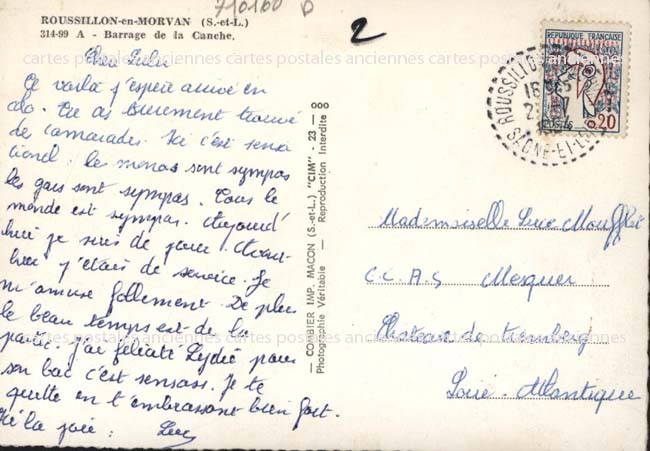 710160 D
2
ROUSSILLON-en-MORVAN (S.-et-L.)
314-99 A - Barrage de la Canche.
Te voilà j'espère arrivé en
colo. Tu as sûrement trouvé
de camarades. Ici c'est sensa
tionel : les monos sont sympas
les gars sont sympas. Tous le
monde est sympas. Aujourd
hui je suis de jour. Avant-
hier j'étais de service. Je
m'amuse follement. De plus
le beau temps est de la
partie. J'ai félicité Lydie pour
son bac c'est sensass. Je te
quitte en t'embrassant bien fort.
Luc
COMBIER IMP. MACON (S.-et-L.) "CIM" - 23 - 000
Photographie Véritable - Reproduction Interdite
REPUBLIQUE FRANÇAISE
POSTES 0,20
ROUSSILLON
SAONE-ET-LOIRE
Mademoiselle Luce Moufflet
C.C.A.S Mesquer
Chateau de Tremberg
Loire Atlantique
cartes postales anciennes cartes postales anciennes cartes postales anciennes